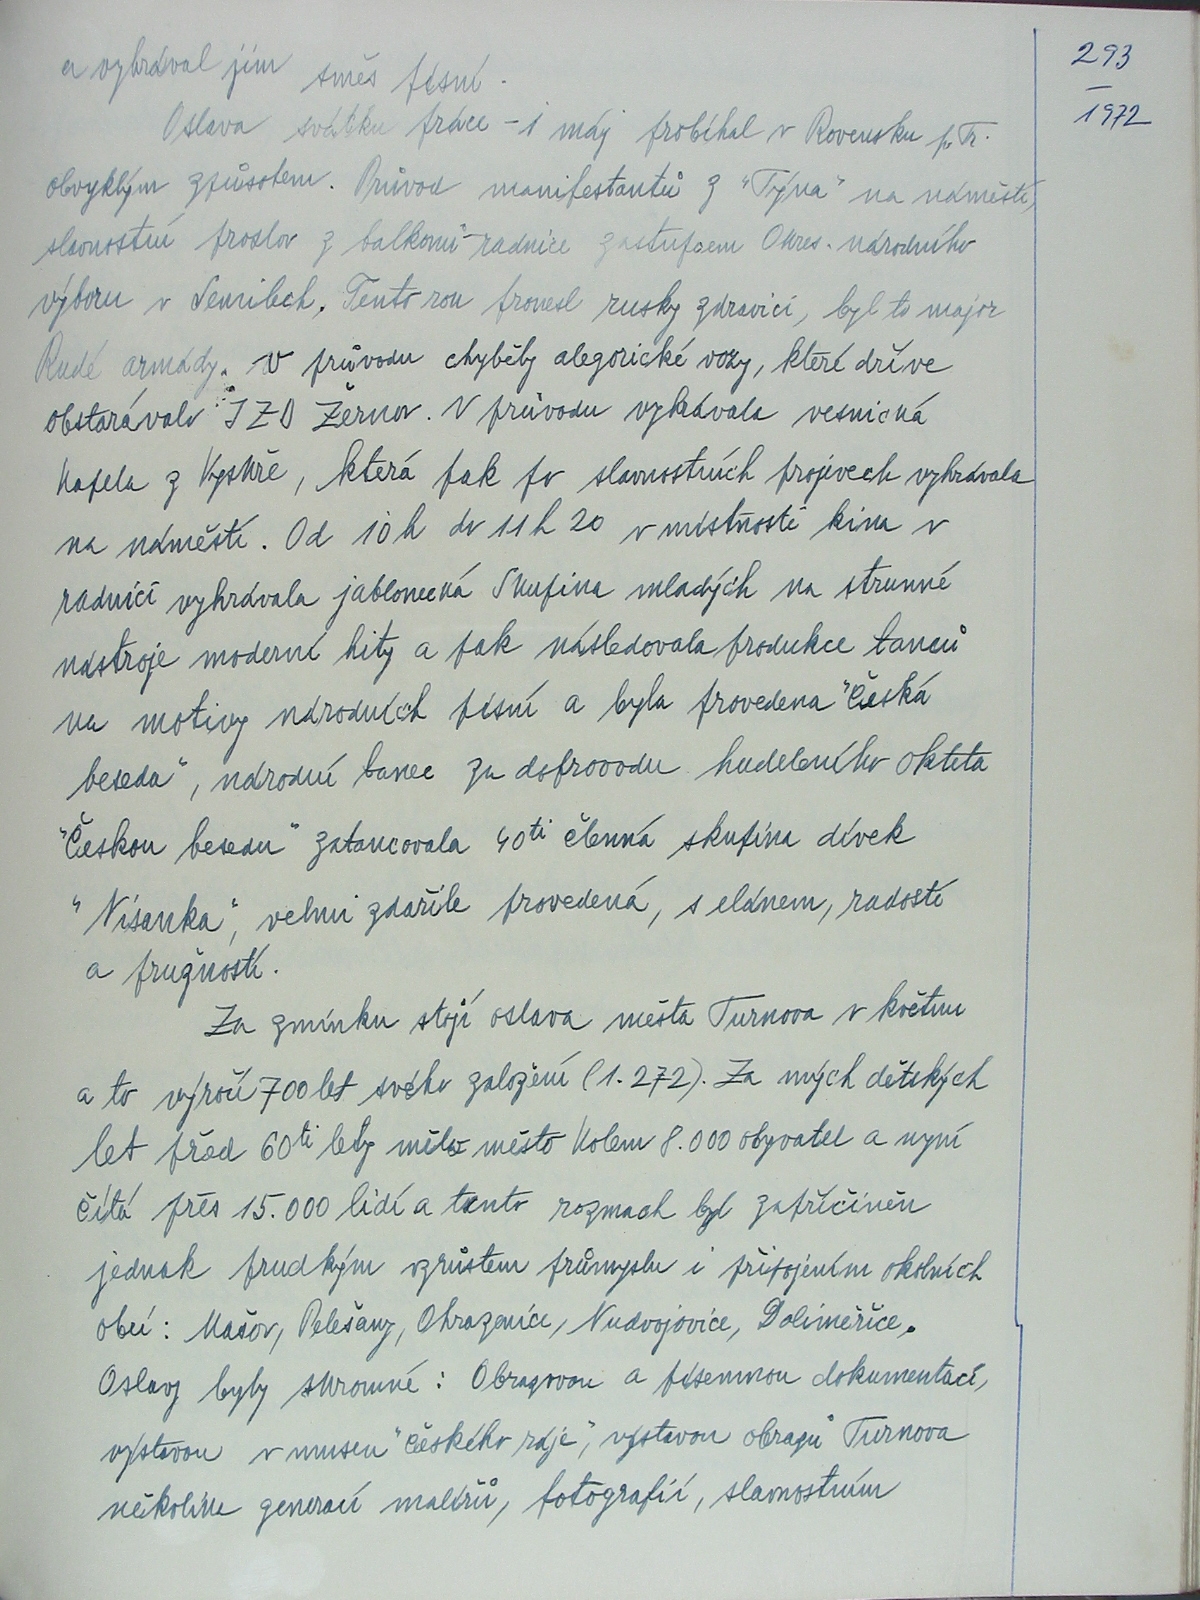 293
—
1972
a vyhrával jim směs písní.
Oslava svátku práce - 1 máj probíhal v Rovensku p. Tr.
obvyklým způsobem. Průvod manifestantů z "Týna" na náměstí,
slavnostní proslov z balkonu radnice zástupcem Okres. národního
výboru v Semilech. Tento rok pronesl rusky zdravici, byl to major
Rudé armády. V průvodu chyběly alegorické vozy, které dříve
obstarávalo JZD Žernov. V průvodu vyhrávala vesnická
kapela z Vyskře, která pak po slavnostních projevech vyhrávala
na náměstí. Od 10 h do 11 h 20 v místnosti kina v
radnici vyhrávala jablonecká skupina mladých na strunné
nástroje moderní hity a pak následovala produkce tanců
na motivy národních písní a byla provedena "Česká
beseda", národní tanec za doprovodu hudebního okteta
"Českou besedu" zatancovala 40ti členná skupina dívek
"Nisanka", velmi zdařile provedená, s elánem, radostí
a pružností.
Za zmínku stojí oslava města Turnova v květnu
a to výročí 700 let svého založení (1.272). Za mých dětských
let před 60ti lety mělo město kolem 8.000 obyvatel a nyní
čítá přes 15.000 lidí a tento rozmach byl zapříčiněn
jednak prudkým vzrůstem průmyslu i připojením okolních
obcí: Mašov, Pelešany, Ohrazenice, Nudvojovice, Dolíměřice.
Oslavy byly skromné: Obrazovou a písemnou dokumentací,
výstavou v museu "Českého ráje", výstavou obrazů Turnova
několika generací malířů, fotografií, slavnostním